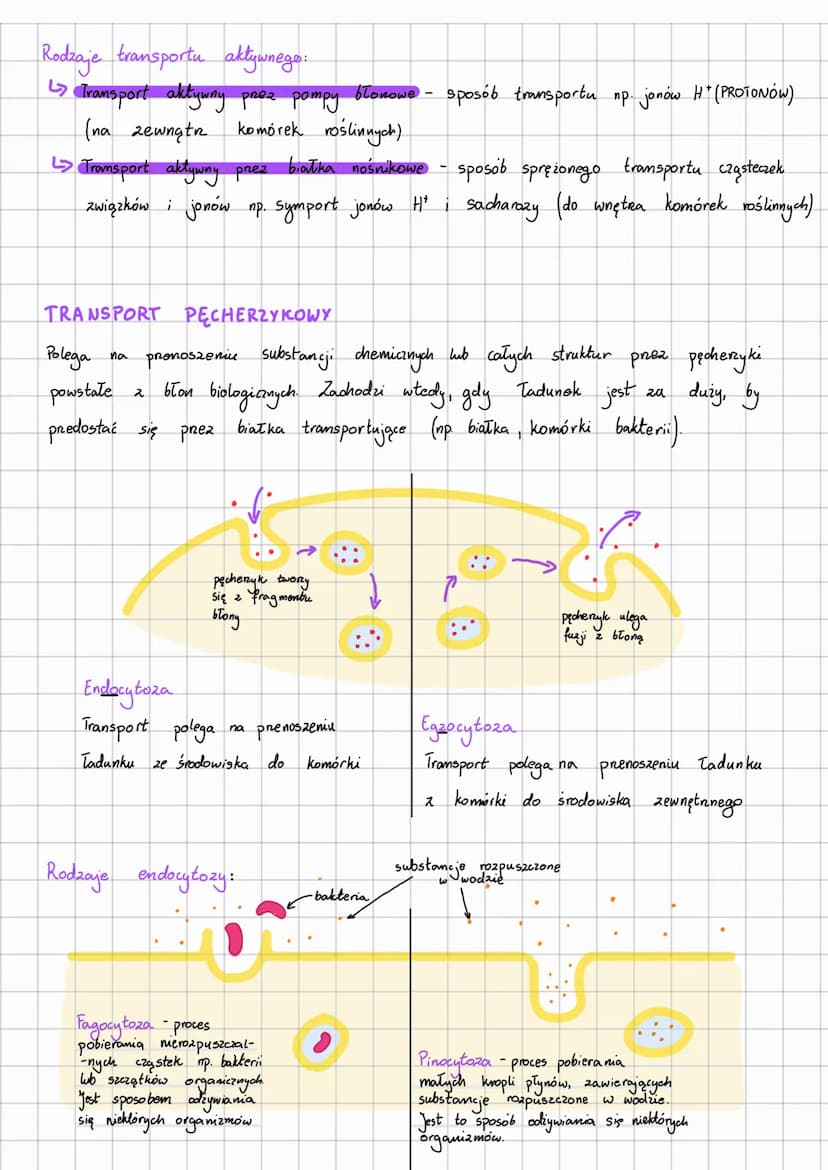 Rodzaje transportu aktywnego:
↳ Transport aktywny przez pompy błonowe - sposób transportu np. jonów H⁺ (PROTONÓW)
(na zewnątrz komórek roślinnych)
↳ Transport aktywny przez białka nośnikowe - sposób sprężonego transportu cząsteczek
związków i jonów np. symport jonów H⁺ i sacharozy (do wnętrza komórek roślinnych)
TRANSPORT PĘCHERZYKOWY
Polega na przenoszeniu substancji chemicznych lub całych struktur przez pęcherzyki
powstałe z błon biologicznych. Zachodzi wtedy, gdy ładunek jest za duży, by
przedostać się przez białka transportujące (np białka, komórki bakterii).
pęcherzyk tworzy
się z fragmentu
błony
pęcherzyk ulega
fuzji z błoną
Endocytoza
Transport polega na przenoszeniu
ładunku ze środowiska do komórki
Egzocytoza
Transport polega na przenoszeniu ładunku
z komórki do środowiska zewnętrznego
Rodzaje endocytozy:
substancje rozpuszczone
w wodzie
bakteria
Fagocytoza - proces
pobierania nierozpuszczal-
-nych cząstek np. bakterii
lub szczątków organicznych.
Jest sposobem odżywiania
się niektórych organizmów
Pinocytoza - proces pobierania
małych kropli płynów, zawierających
substancje rozpuszczone w wodzie.
Jest to sposób odżywiania się niektórych
organizmów.